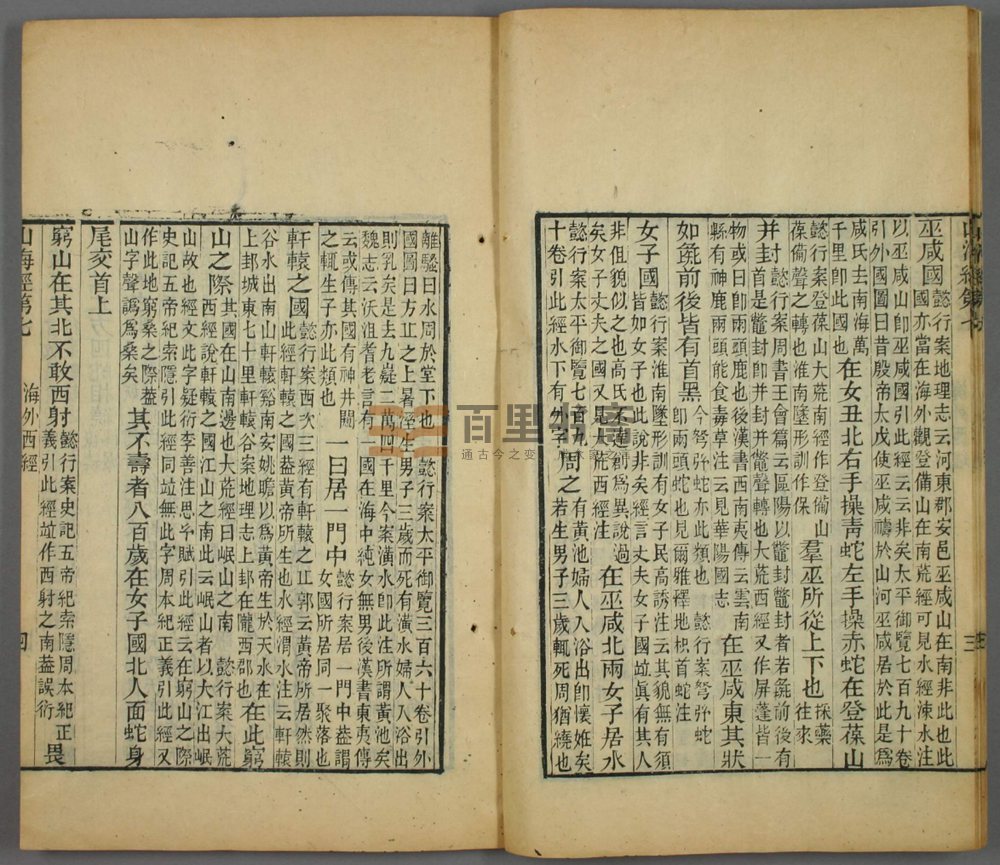 山海經第七
三
巫咸國
懿行案地理志云河東郡安邑巫咸山在南非此也此
國亦當在海外觀登備山在南荒經可見水經涑水注
以巫咸山卽巫咸國引此經云云非矣太平御覽七百九十卷
引外國圖曰昔殷帝太戊使巫咸禱於山河巫咸居於此是爲
咸氏去南海萬
千里卽此國也
在女丑北右手操靑蛇左手操赤蛇在登葆山
懿行案登葆山大荒南經作登備山
葆備聲之轉也淮南墜形訓作保
羣巫所從上下也
採藥
往來
并封
懿行案周書王會篇云區陽以鼈封鼈封者若彘前後有
首是鼈封卽并封并鼈聲轉也大荒西經又作屏蓬皆一
物或曰卽兩頭鹿也後漢書西南夷傳云雲南
縣有神鹿兩頭能食毒草注云見華陽國志
在巫咸東其狀
如彘前後皆有首黑
今弩弦蛇亦此類也 懿行案弩弦蛇
卽兩頭蛇也見爾雅釋地枳首蛇注
女子國
懿行案淮南墜形訓有女子民高誘注云其貌無有須
皆如女子也此說非矣經言丈夫女子國竝眞有其人
非但貌似之也高氏不達創爲異說過
矣女子丈夫之國又見大荒西經注
在巫咸北兩女子居水
懿行案太平御覽七百九
十卷引此經水下有外字
周之
有黃池婦人入浴出卽懷妊矣
若生男子三歲輒死周猶繞也
離騷曰水周於堂下也 懿行案太平御覽三百六十卷引外
國圖曰方丘之上暑溼生男子三歲而死有潢水婦人入浴出
則乳矣是去九嶷二萬四千里今案潢水卽此注所謂黃池矣
魏志云沃沮耆老言有一國在海中純女無男後漢書東夷傳
云或傳其國有神井闚
之輒生子亦此類也
一曰居一門中
懿行案居一門中葢謂
女國所居同一聚落也
軒轅之國
懿行案西次三經有軒轅之丘郭云黃帝所居然則
此經軒轅之國葢黃帝所生也水經渭水注云軒轅
谷水出南山軒轅谿南安姚瞻以爲黃帝生於天水在
上邽城東七十里軒轅谷案地理志上邽在隴西郡也
在此窮
山之際
其國在山南邊也大荒經曰岷山之南 懿行案大荒
西經說軒轅之國江山之南此云岷山者以大江出岷
山故也經文此字疑衍李善注思𤣥賦引此經云在窮山之際
史記五帝紀索隱引此經同竝無此字周本紀正義引此經又
作此地窮桑之際葢
山字聲譌爲桑矣
其不壽者八百歲在女子國北人面蛇身
尾交首上
窮山在其北不敢西射
懿行案史記五帝紀索隱周本紀正
義引此經竝作西射之南葢誤衍
畏
山海經第七
海外西經
四
百里
通古今之变